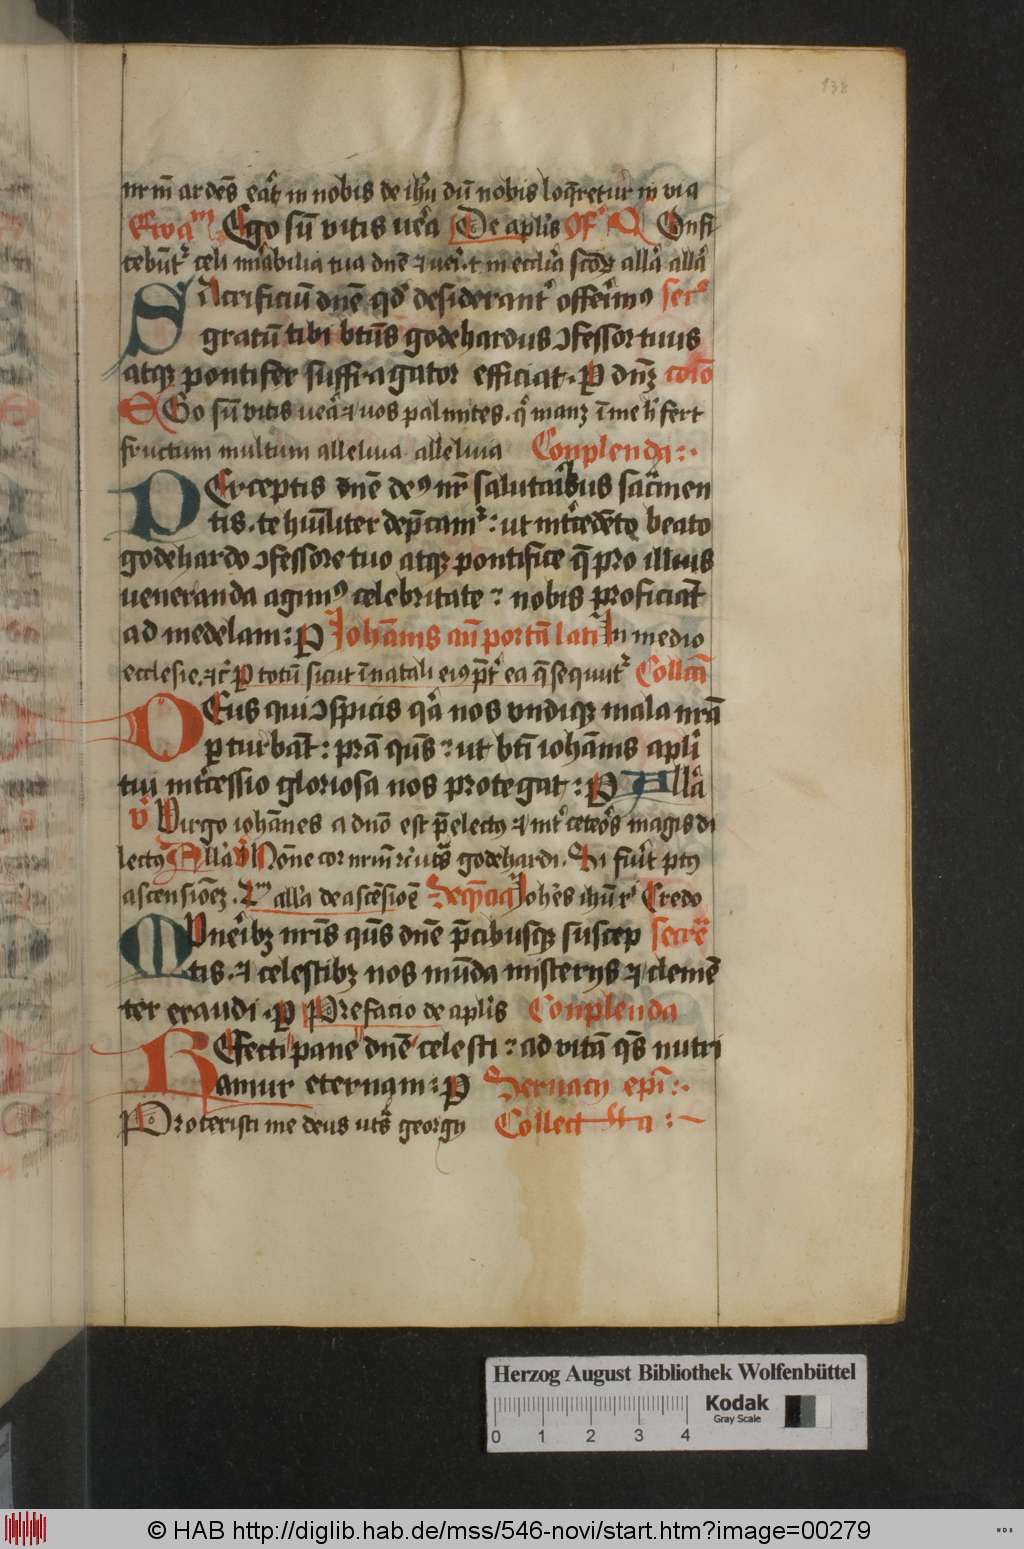 138
nrm̄ ardēs erāt in nobis de ihū dū nobis loq̄retur in via
Ewāᵐ Ego sū vitis uera De aplīs Of Confi
tebūt celi mirabilia tua dnē ⁊ ueri·t in ecclīa scōꝝ alla alla
Sacrificiū dnē qd̄ desiderant᷑ offerim⁹ secr
gratū tibi btūs godehardus ↄfessor tuus
atqꝫ pontifex suffragator efficiat · P dnꝫ cōio
Ego sū vitis uera ⁊ uos palmites · q̄ manꝫ ī me h fert
fructum multum alleluia alleluia Conplenda :·
PErceptis dnē de⁹ nr̄ salutaribus sacmen
tis · te hūiliter dep̄cam᷑ : ut intcedēte beato
godehardo ↄfessore tuo atqꝫ pontifice q̄ pro illius
ueneranda agim⁹ celebritate : nobis proficiat
ad medelam : P Johānis an̄ portā lati In medio
ecclesie · ⁊c̄ P totū sicut ī natali ei⁹ p̄t ea q̄ sequnt᷑ Collcā
DEus qui ↄspicis qa nos vndiqꝫ mala nrā
ꝑturbāt : prā qūs : ut btī iohānis apli
tui intcessio gloriosa nos protegat : P Alla
V Virgo iohānes a dnō est p̄elect⁹ ⁊ int ceteros magis di
lect⁹ Alla V Nōne cor nrm̄ rͥ uts godehardi · Si fuīt pt⁹
ascensionē · alla de ascēsionē Seqn̄cia Johēs ihū r Credo
Mvneribꝫ nrīs qūs dnē p̄cibusqꝫ suscep secrē
tis · ⁊ celestibꝫ nos mūda misterijs ⁊ clemē
ter exaudi · P Prefacio de aplīs Conplenda
REfecti pane dnē celesti : ad vitā qs̄ nutri
amur eternam : P Seruacij epī :·
Protexisti me deus uts georgij Collecta :
Herzog August Bibliothek Wolfenbüttel
0 1 2 3 4
Kodak
Gray Scale
© HAB http://diglib.hab.de/mss/546-novi/start.htm?image=00279